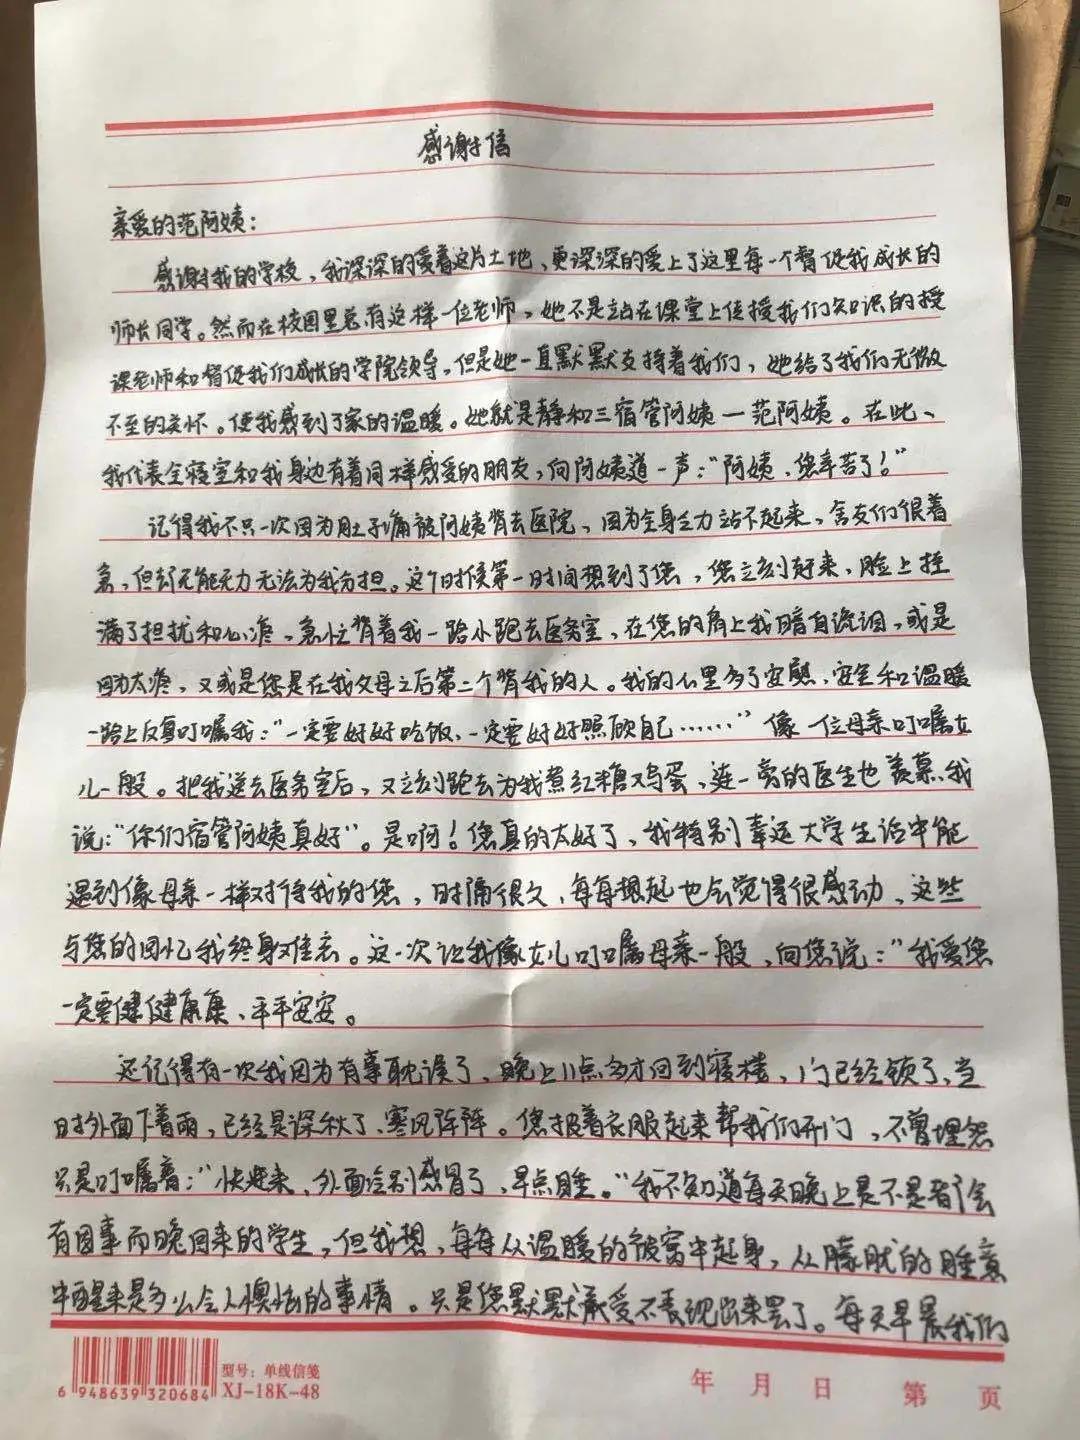 感谢信
亲爱的范阿姨：
感谢我的学校，我深深的爱着这片土地、更深深的爱上了这里每一个督促我成长的
师长同学。然而在校园里总有这样一位老师，她不是站在课堂上传授我们知识的授
课老师和督促我们成长的学院领导，但是她一直默默支持着我们，她给了我们无微
不至的关怀。使我感到了家的温暖。她就是静和三宿管阿姨—范阿姨。在此、
我代表全寝室和我身边有着同样感受的朋友，向阿姨道一声：“阿姨，您辛苦了！”
记得我不只一次因为肚子痛被阿姨背去医院，因为全身乏力站不起来，舍友们很着
急，但却无能无力无法为我分担。这个时候第一时间想到了您，您立刻赶来，脸上挂
满了担扰和心疼，急忙背着我一路小跑去医务室，在您的肩上我暗自流泪，或是
因为太疼，又或是您是在我父母之后第二个背我的人。我的心里多了安慰，安全和温暖
一路上反复叮嘱我：“一定要好好吃饭、一定要好好照顾自己……”像一位母亲叮嘱女
儿一般。把我送去医务室后，又立刻跑去为我煮红糖鸡蛋，连一旁的医生也羡慕我
说：“你们宿管阿姨真好”。是啊！您真的太好了，我特别幸运大学生活中能
遇到像母亲一样对待我的您，时隔很久，每每想起也会觉得很感动，这些
与您的回忆我终身难忘。这一次让我像女儿叮嘱母亲一般，向您说：“我爱您
一定要健健康康、平平安安。
还记得有一次我因为有事耽误了，晚上11点多才回到寝楼，门已经锁了，当
时外面下着雨，已经是深秋了、寒风阵阵。您披着衣服起来帮我们开门，不曾埋怨
只是叮嘱着：“快进来、外面冷别感冒了，早点睡。”我不知道每天晚上是不是都会
有因事而晚回来的学生，但我想，每每从温暖的被窝中起身，从朦胧的睡意
中醒来是多么令人懊恼的事情。只是您默默承受不表现出来罢了。每天早晨我们
6 948639 320684
型号：单线信笺
XJ-18K-48
年 月 日 第 页